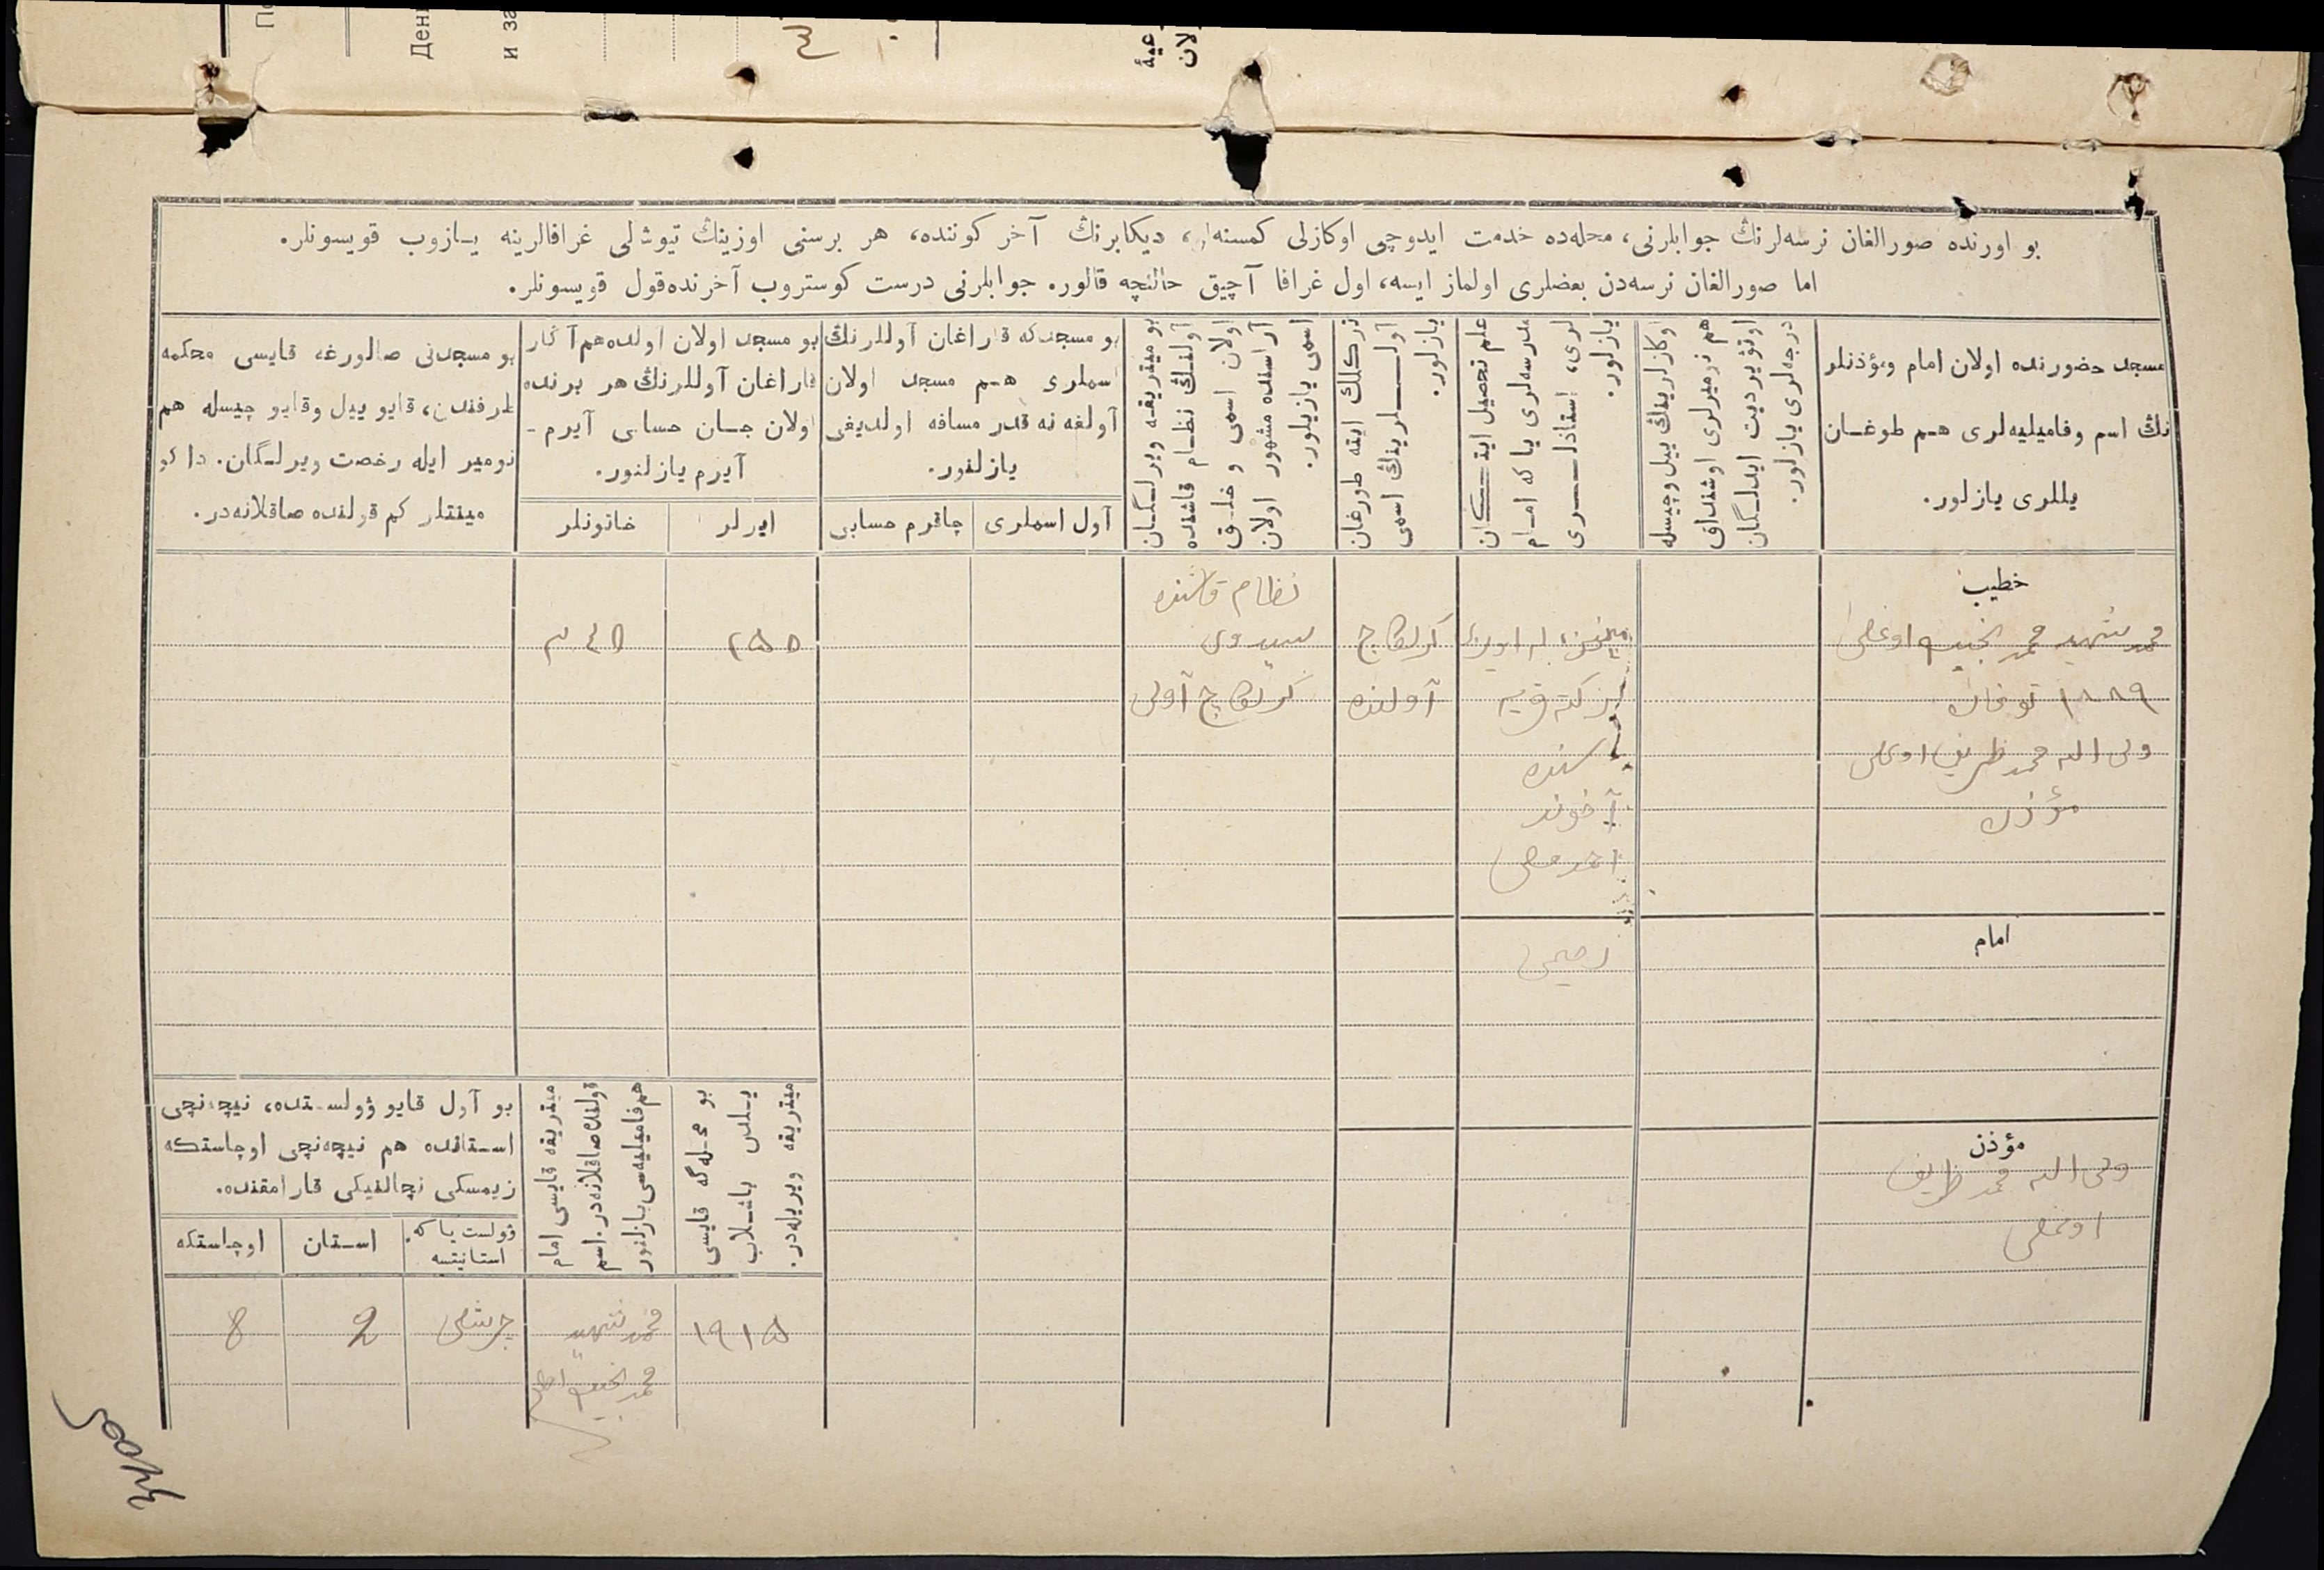 بو اورنده صورالغان نرسه‌لرنڭ جوابلرنی، محله‌ده خدمت ایدوچی اوکازلی کمسنه‌لر، دیکابرنڭ آخر کوننده، هر برسنی اوزینڭ تیوشلی غرافالرینه یازوب قویسونلر.
اما صورالغان نرسه‌دن بعضلری اولماز ایسه، اول غرافا آچیق حالنچه قالور. جوابلرنی درست کوستروب آخرنده قول قویسونلر.
مسجد حضورنده اولان امام ومؤذنلر
نڭ اسم وفامیلیه‌لری هم طوغان
یللری یازلور.
اوکازلرینڭ ییل وچیسله
هم نومیرلری اوشنداق
اوتؤیردیت ایدلگان
درجه‌لری یازلور.
علم تحصیل ایتکان
مدرسه‌لری یا که امام
لری، استاذلری
یازلور.
نرکلك ایته طورغان
آوللرینڭ اسمی
یازلور.
بو میتریقه ویرلگان
آولنڭ نظام قاشنده
اولان اسمی و خلق
آراسنده مشهور اولان
اسمی یازیلور.
بو مسجدکه قاراغان آوللرنڭ
اسملری هم مسجد اولان
آولغه نه قدر مسافه اولدیغی
یازلنور.
آول اسملری
چاقرم حسابی
بو مسجد اولان اولده هم آڭار
قاراغان آوللرنڭ هر برنده
اولان جان حسابی آیرم -
آیرم یازلنور.
ایرلر
خاتونلر
بو مسجدنی صالورغه قایسی محکمه
طرفندن، قایو ییل وقایو چیسله هم
نومیر ایله رخصت ویرلگان. دا کو
مینتلر کم قولنده صاقلانه‌در.
خطیب
محمد شهید محمد الحبیب اوغلی
۱۸۸۹ توغان
ولی الله محمد ظریف اوغلی
مؤذن
آخوند
کرلغاچ
آولنده
نظام قاشنده
کرلغاچ آولی
۲۵۵
امام
رحیمی
مؤذن
ولی الله محمد ظریف
اوغلی
بو محله‌گه قایسی
یلدن باشلاب
میتریقه ویریله‌در.
میتریقه قایسی امام
قولنده صاقلانه‌در. اسم
هم فامیلیه‌سی یازلنور
بو آول قایو ؤولستده، نیچه‌نچی
استانده هم نیچه‌نچی اوچاستکه
زیمسکی نچالنیکی قارامقنده.
ؤولست یا که
استانیتسه
استان
اوچاستکه
۱۹۱۵
محمد شهید
محمد الحبیب
2
8